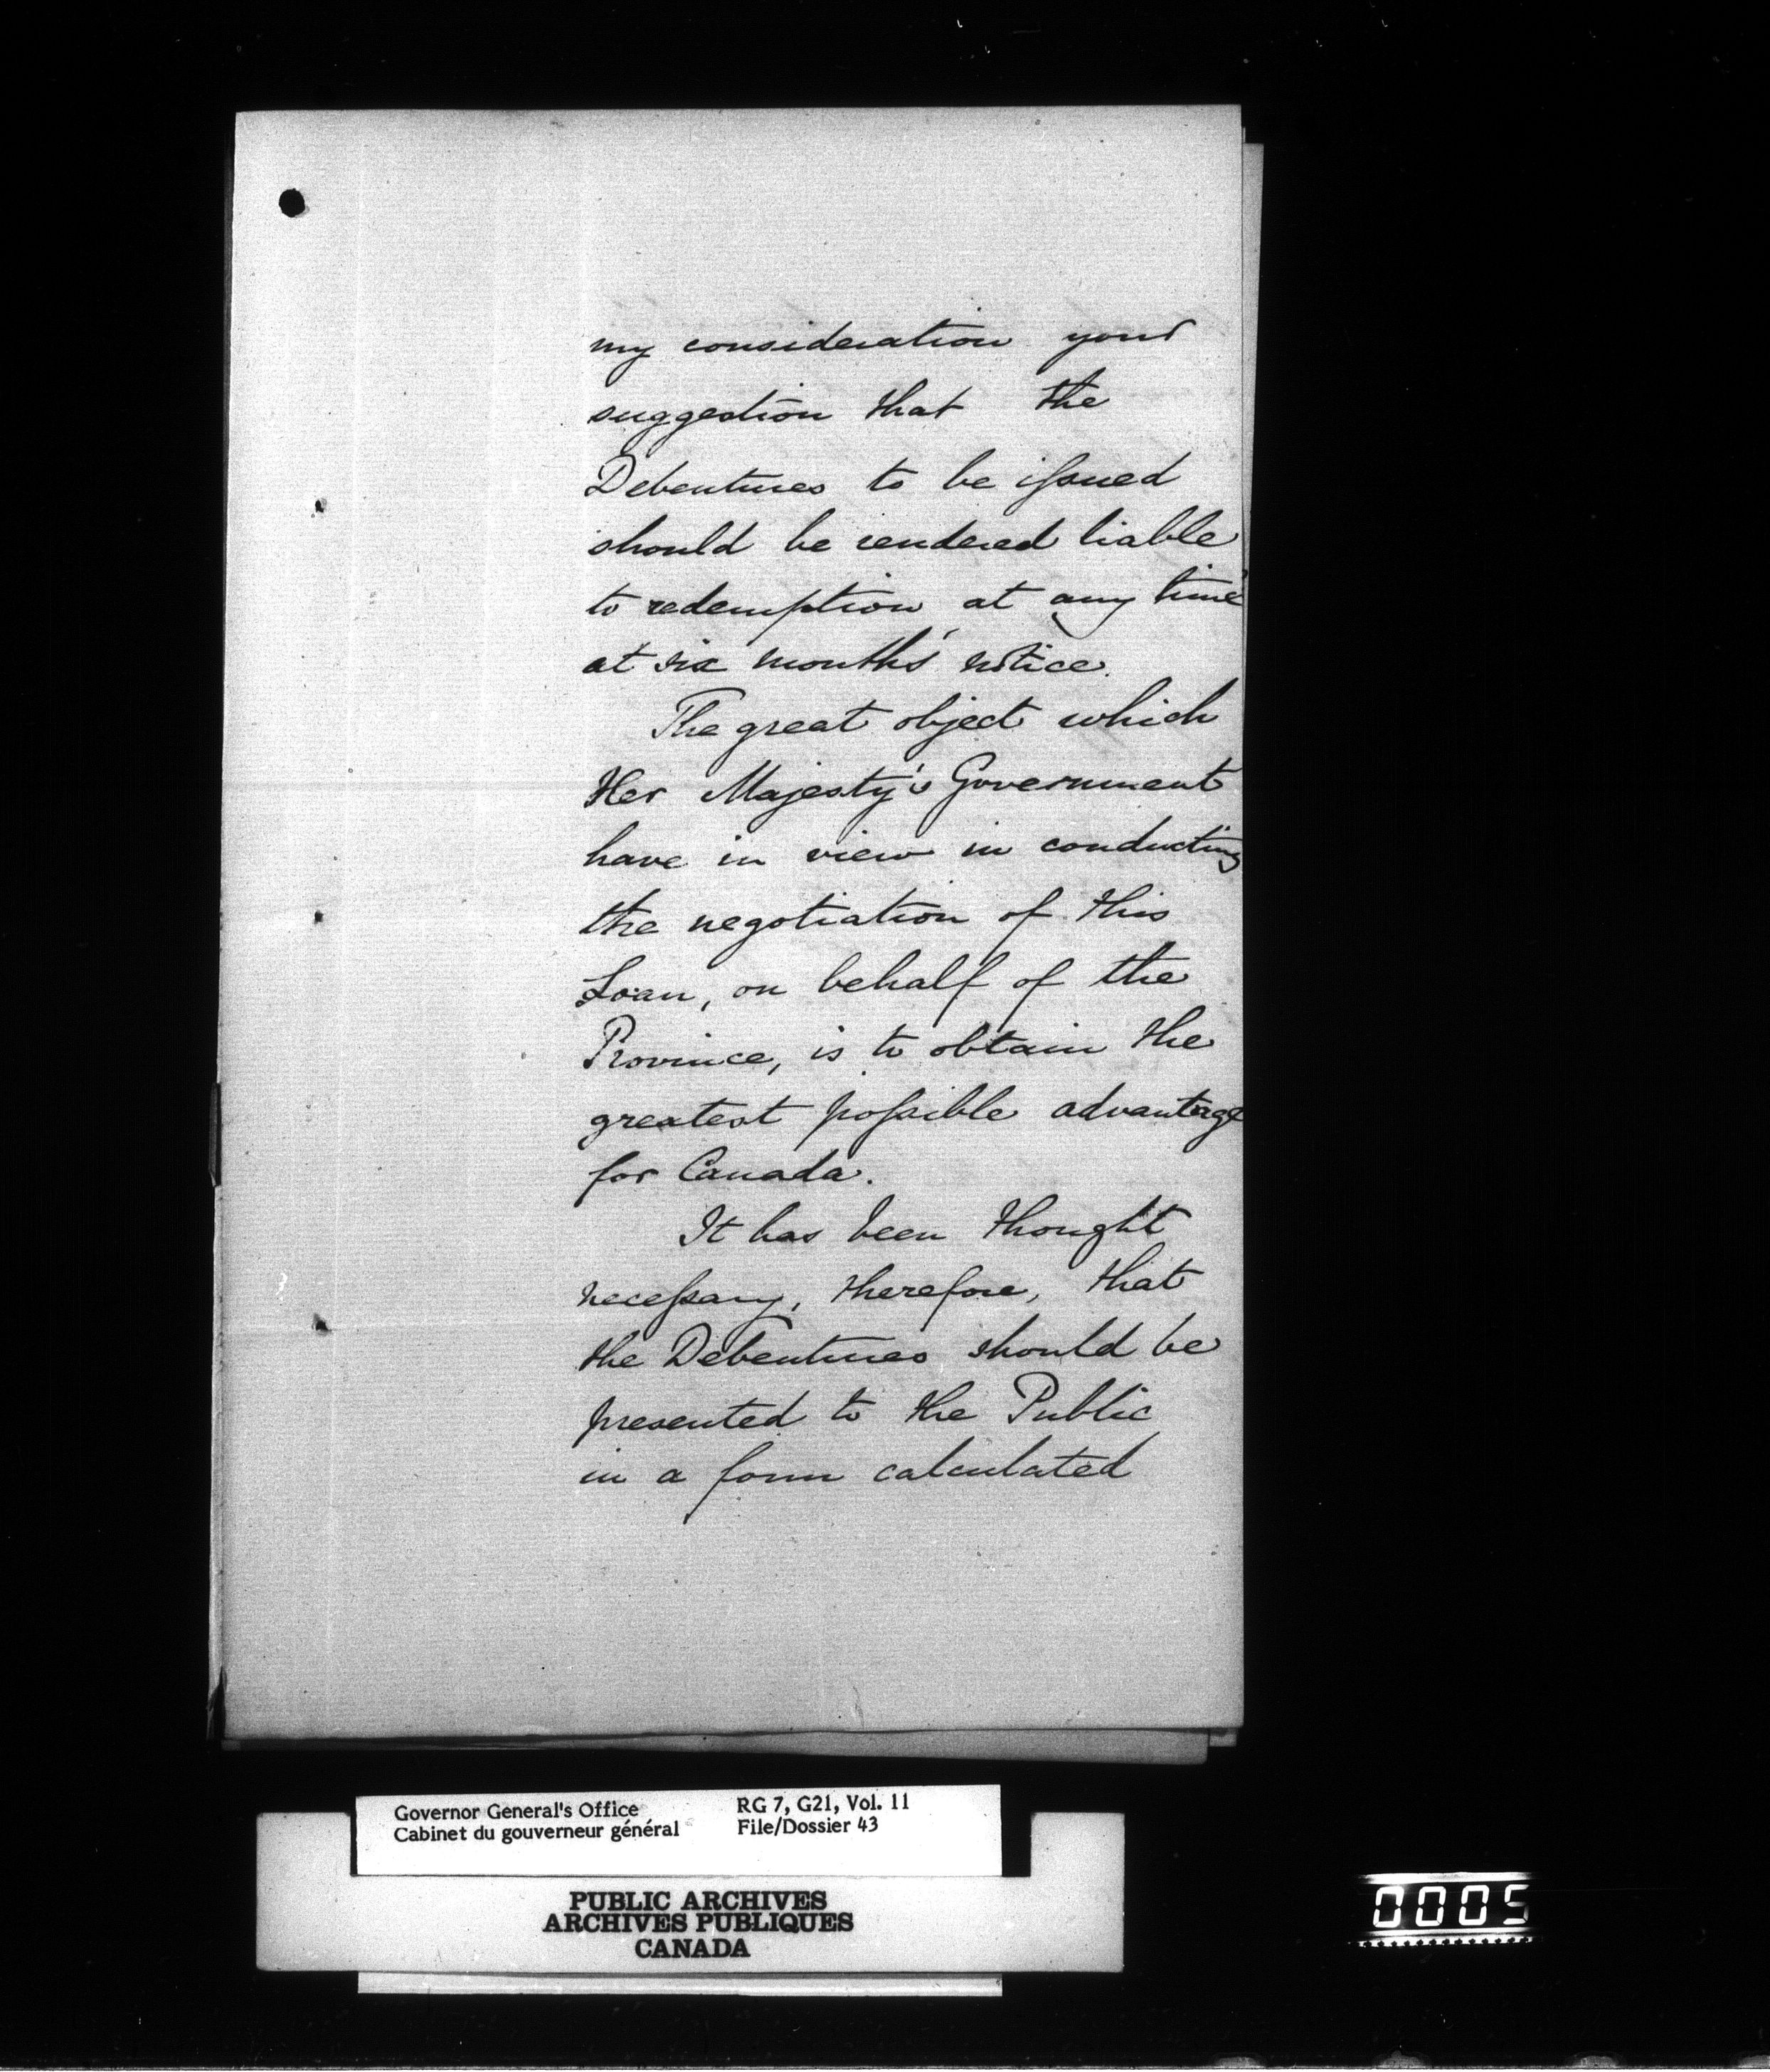 my consideration your
suggestion that the
Debentures to be issued
should be rendered liable
to redemption at any time
at six months' notice.
The great object which
Her Majesty's Government
have in view in conducting
the negotiation of this
Loan, on behalf of the
Province, is to obtain the
greatest possible advantage
for Canada.
It has been thought
necessary, therefore, that
the Debentures should be
presented to the Public
in a form calculated
Governor General's Office
Cabinet du gouverneur général
RG 7, G21, Vol. 11
File/Dossier 43
PUBLIC ARCHIVES
ARCHIVES PUBLIQUES
CANADA
0005